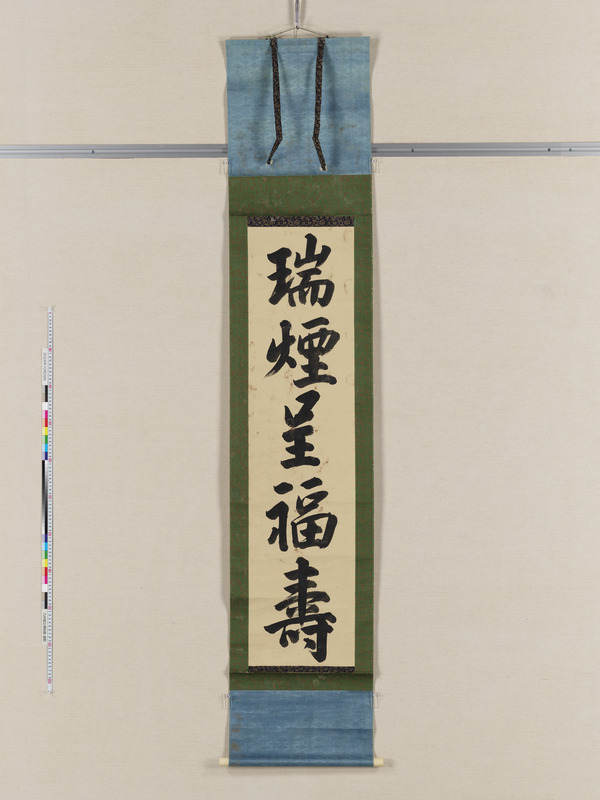 瑞煙呈福壽